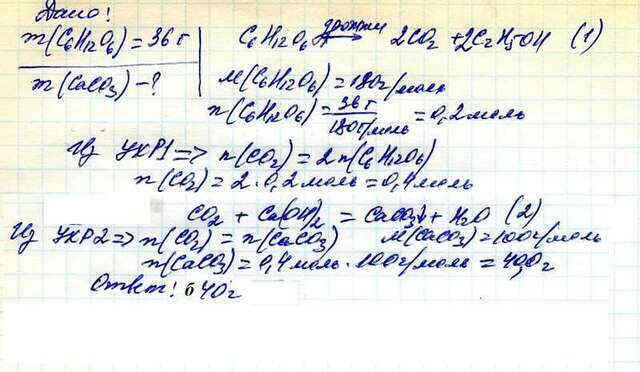 Дано!
m(C6H12O6) = 36 г
m(CaCO3) - ?
C6H12O6 дрожжи → 2CO2 + 2C2H5OH (1)
M(C6H12O6) = 180 г/моль
n(C6H12O6) = 36 г / 180 г/моль = 0,2 моль
Из УХР1 => n(CO2) = 2n(C6H12O6)
n(CO2) = 2·0,2 моль = 0,4 моль
CO2 + Ca(OH)2 = CaCO3↓ + H2O (2)
Из УХР2 => n(CO2) = n(CaCO3) M(CaCO3) = 100 г/моль
n(CaCO3) = 0,4 моль · 100 г/моль = 40,0 г
Ответ! б 40г